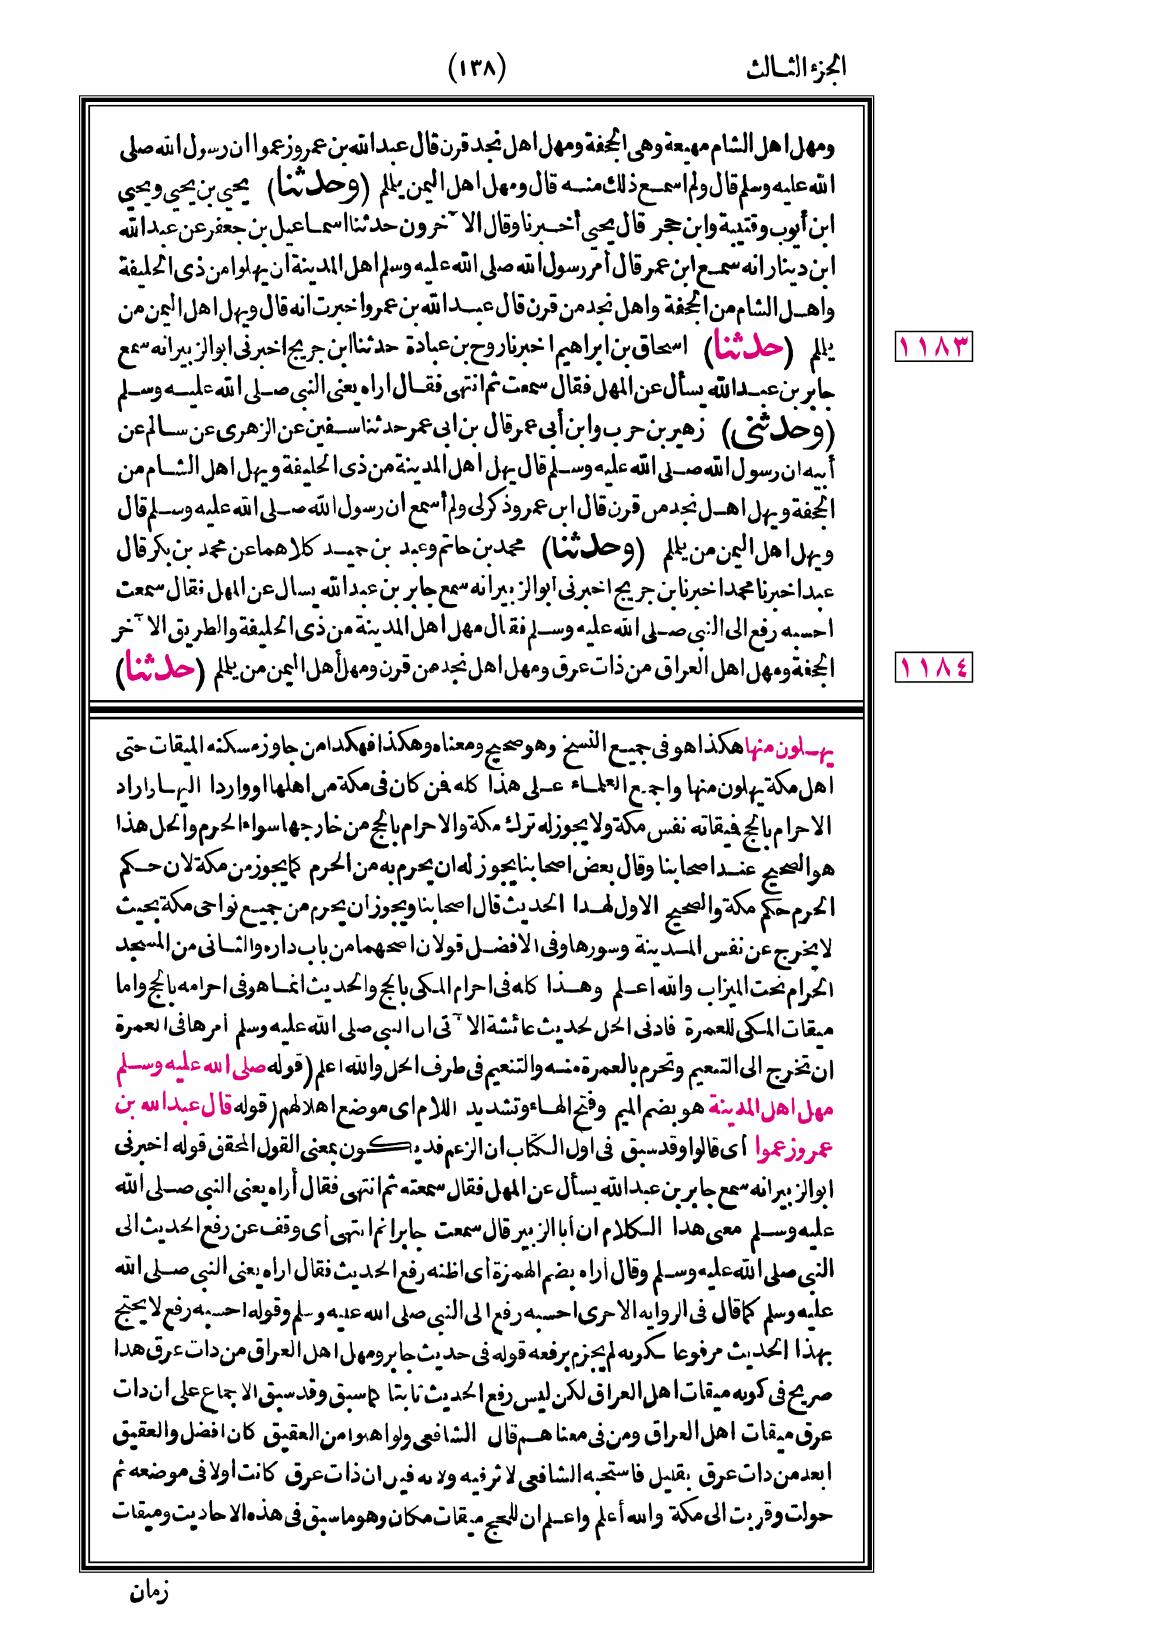 الجزء الثالث
(١٣٨)
ومهل اهل الشام مهيعة وهى الجحفة ومهل اهل نجد قرن قال عبد الله بن عمر وزعموا ان رسول الله صلى
الله عليه وسلم قال ولم اسمع ذلك منه قال ومهل اهل اليمن يلملم (وحدثنا) يحيى بن يحيى ويحيى
ابن أيوب وقتيبة وابن حجر قال يحيى أخبرنا وقال الآخرون حدثنا اسماعيل بن جعفر عن عبد الله
ابن دينار انه سمع ابن عمر قال أمر رسول الله صلى الله عليه وسلم اهل المدينة ان يهلوا من ذى الحليفة
واهل الشام من الجحفة واهل نجد من قرن قال عبد الله بن عمر واخبرت انه قال ويهل اهل اليمن من
يلملم (حدثنا) اسحاق بن ابراهيم اخبرنا روح بن عبادة حدثنا ابن جريج اخبرنى ابو الزبير انه سمع
١١٨٣
جابر بن عبد الله يسأل عن المهل فقال سمعت ثم انتهى فقال اراه يعنى النبى صلى الله عليه وسلم
(وحدثنى) زهير بن حرب وابن أبى عمر قال بن ابى عمر حدثنا سفين عن الزهرى عن سالم عن
أبيه ان رسول الله صلى الله عليه وسلم قال يهل اهل المدينة من ذى الحليفة ويهل اهل الشام من
الجحفة ويهل اهل نجد من قرن قال ابن عمر وذكر لى ولم أسمع ان رسول الله صلى الله عليه وسلم قال
ويهل اهل اليمن من يلملم (وحدثنا) محمد بن حاتم وعبد بن حميد كلاهما عن محمد بن بكر قال
عبد اخبرنا محمد اخبرنا بن جريج اخبرنى ابو الزبير انه سمع جابر بن عبد الله يسال عن المهل فقال سمعت
احسبه رفع الى النبى صلى الله عليه وسلم فقال مهل اهل المدينة من ذى الحليفة والطريق الآخر
الجحفة ومهل اهل العراق من ذات عرق ومهل اهل نجد من قرن ومهل أهل اليمن من يلملم (حدثنا)
١١٨٤
يهلون منها هكذا هو فى جميع النسخ وهو صحيح ومعناه وهكذا فهكدا من جاوز مسكنه الميقات حتى
اهل مكة يهلون منها واجمع العلماء على هذا كله فمن كان فى مكة من اهلها او واردا اليها واراد
الاحرام بالحج فيقاته نفس مكة ولا يجوز له ترك مكة والاحرام بالحج من خارجها سواء الحرم والحل هذا
هو الصحيح عند اصحابنا وقال بعض اصحابنا يجوز له ان يحرم به من الحرم كما يجوز من مكة لان حكم
الحرم حكم مكة والصحيح الاول لهذا الحديث قال اصحابنا ويجوز ان يحرم من جميع نواحى مكة بحيث
لا يخرج عن نفس المدينة وسورها وفى الافضل قولان اصحهما من باب داره والثانى من المسجد
الحرام تحت الميزاب والله اعلم وهذا كله فى احرام المكى بالحج والحديث انما هو فى احرامه بالحج واما
ميقات المكى للعمرة فادنى الحل لحديث عائشة الآتى ان النبى صلى الله عليه وسلم أمرها فى العمرة
ان تخرج الى التنعيم وتحرم بالعمرة منه والتنعيم فى طرف الحل والله اعلم (قوله صلى الله عليه وسلم
مهل اهل المدينة هو بضم الميم وفتح الهاء وتشديد اللام اى موضع اهلالهم (قوله قال عبد الله بن
عمر وزعموا أى قالوا وقد سبق فى اول الكتاب ان الزعم قد يكون بمعنى القول المحقق قوله اخبرنى
ابو الزبير انه سمع جابر بن عبد الله يسأل عن المهل فقال سمعته ثم انتهى فقال أراه يعنى النبى صلى الله
عليه وسلم معنى هذا الكلام ان أبا الزبير قال سمعت جابرا ثم انتهى أى وقف عن رفع الحديث الى
النبى صلى الله عليه وسلم وقال أراه بضم الهمزة أى اظنه رفع الحديث فقال اراه يعنى النبى صلى الله
عليه وسلم كما قال فى الروايه الاخرى احسبه رفع الى النبى صلى الله عليه وسلم وقوله احسبه رفع لا يحتج
بهذا الحديث مرفوعا لكونه لم يجزم برفعه قوله فى حديث جابر ومهل اهل العراق من ذات عرق هذا
صريح فى كونه ميقات اهل العراق لكن ليس رفع الحديث ثابتا كما سبق وقد سبق الاجماع على ان ذات
عرق ميقات اهل العراق ومن فى معناهم قال الشافعى ولو اهلوا من العقيق كان افضل والعقيق
ابعد من ذات عرق بقليل فاستحبه الشافعى لاثر فيه ولانه قيل ان ذات عرق كانت أولا فى موضعه ثم
حولت وقربت الى مكة والله أعلم واعلم ان للحج ميقات مكان وهو ما سبق فى هذه الاحاديث وميقات
زمان